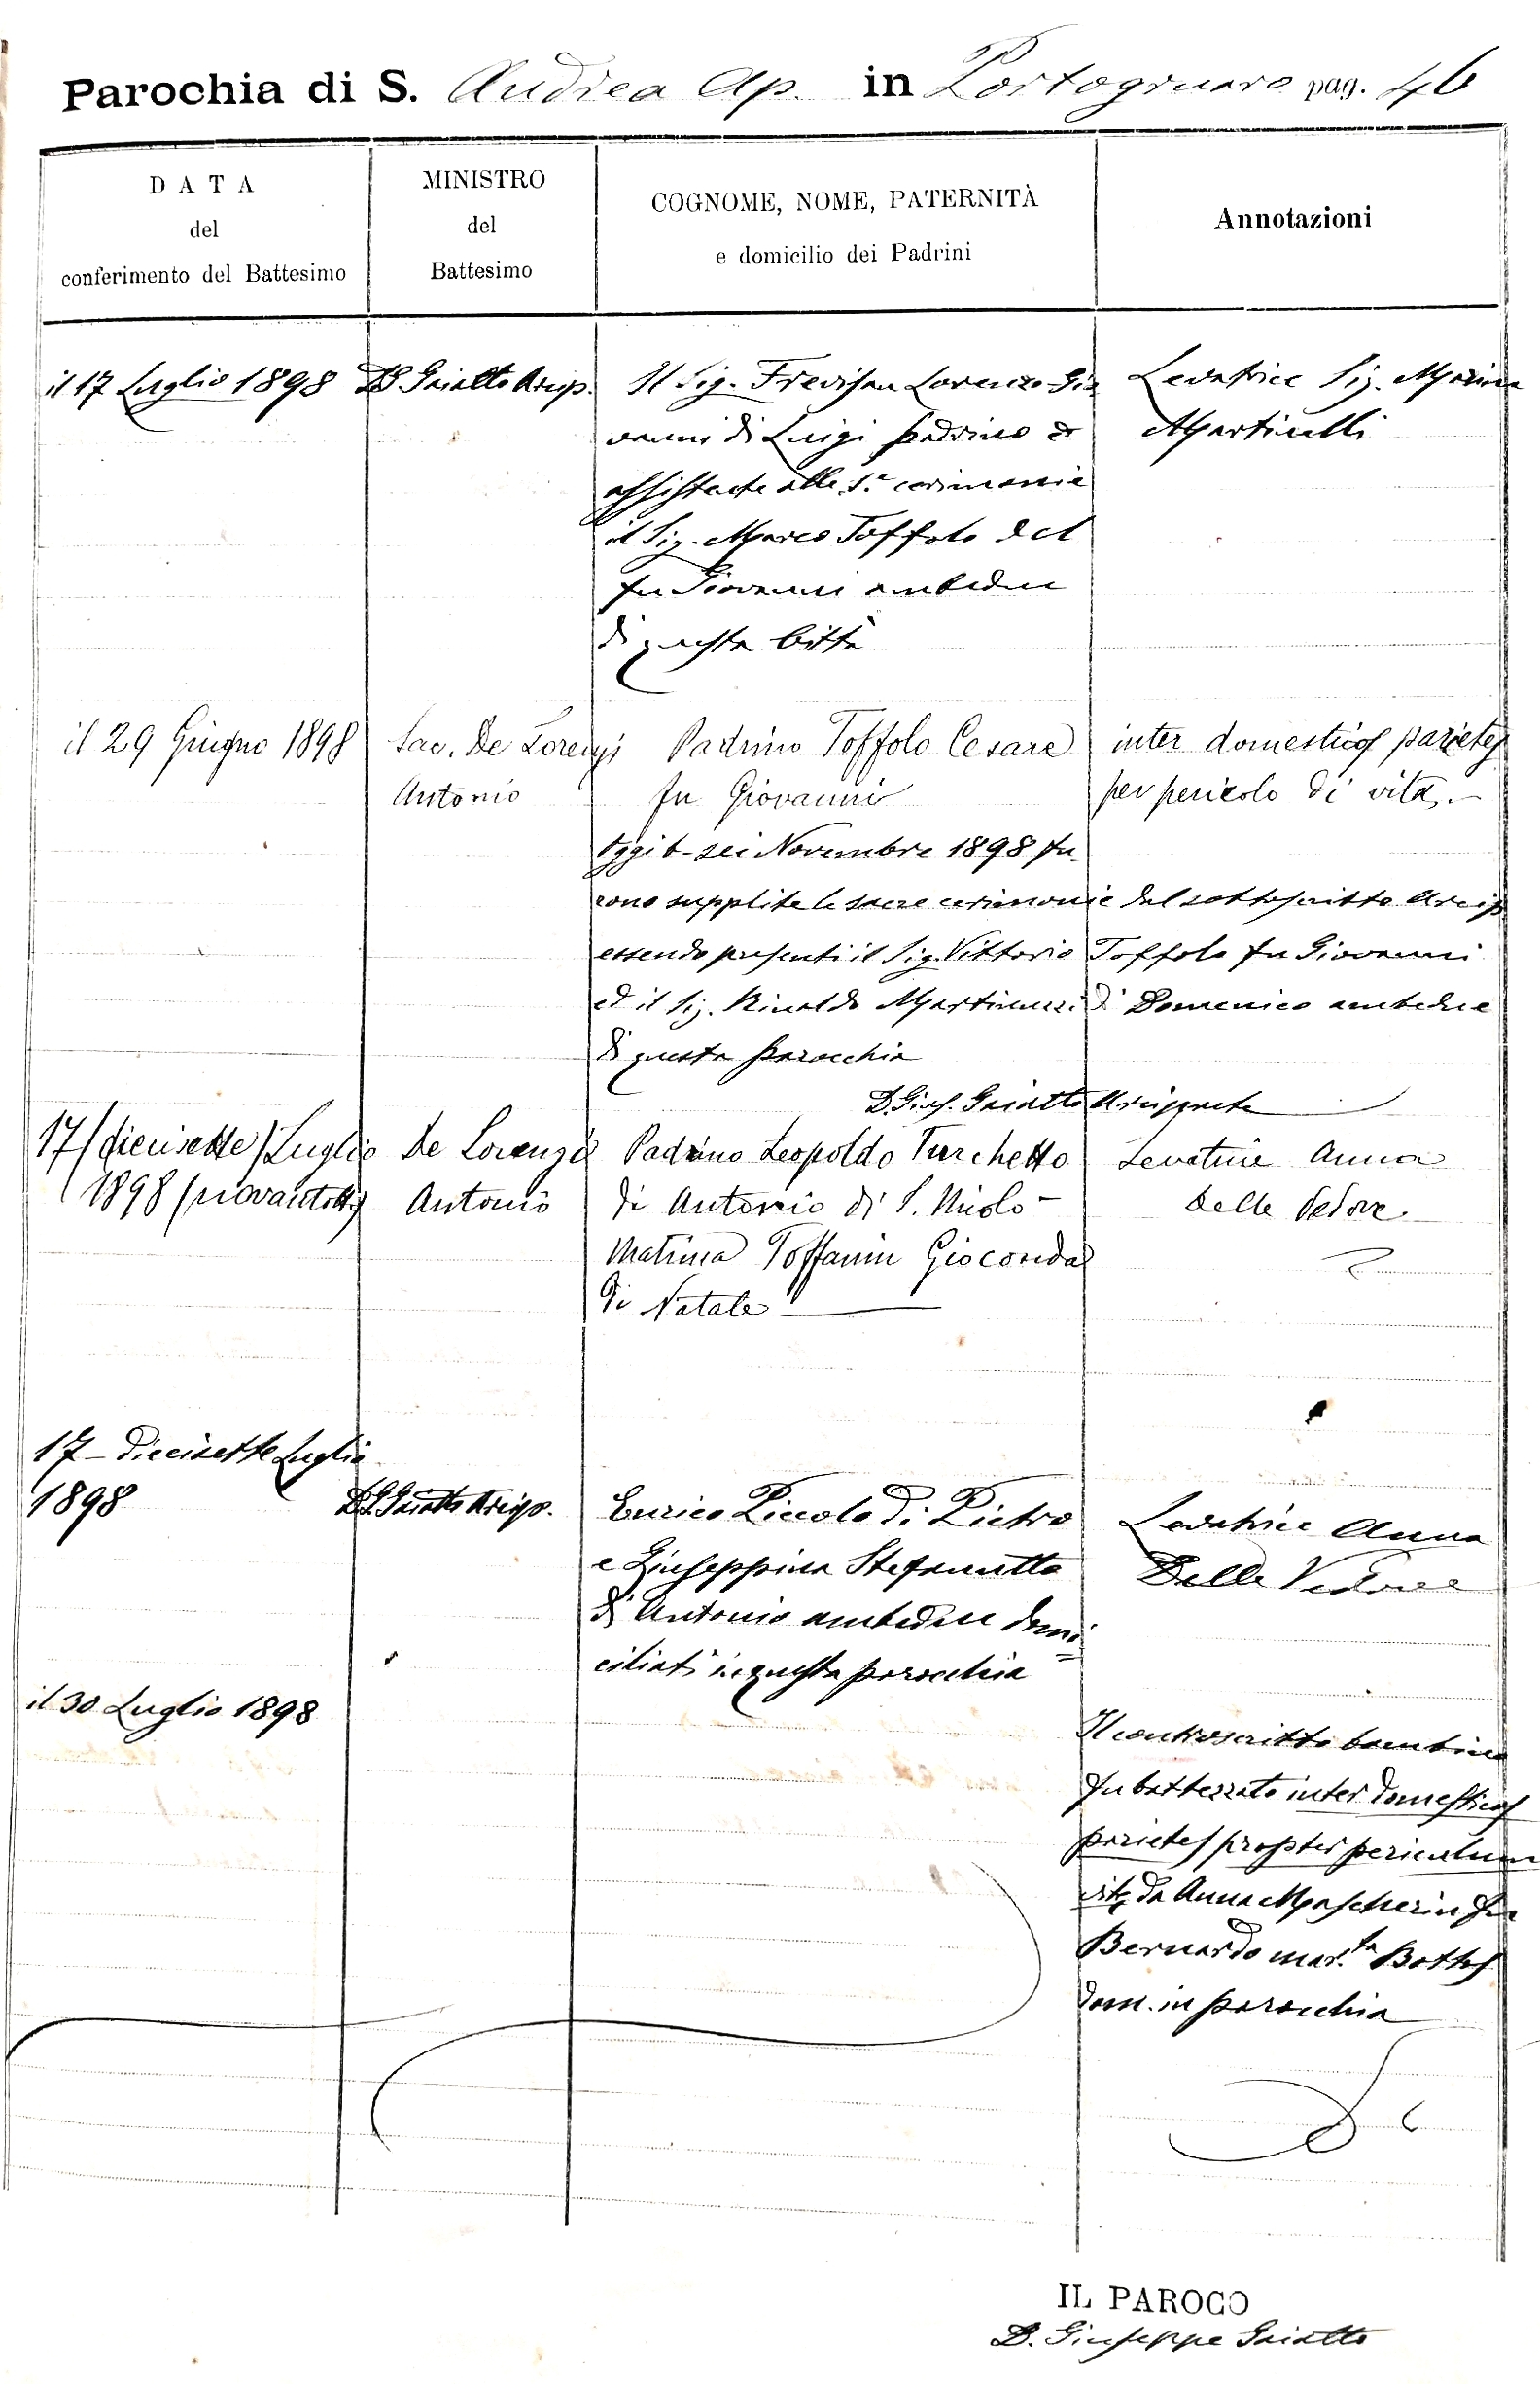 Parochia di S. Andrea Ap. in Portogruaro pag. 46
DATA
del
conferimento del Battesimo
MINISTRO
del
Battesimo
COGNOME, NOME, PATERNITÀ
e domicilio dei Padrini
Annotazioni
il 17 Luglio 1898
D. G. Gaiatto Arcip.
Il Sig. Trevisan Lorenzo Gio
vanni di Luigi padrino e
assistente alle S.e cerimonie
il Sig. Marco Toffolo del
fu Giovanni ambedue
di questa Città
Levatrice Sig. Marina
Martinelli
il 29 Giugno 1898
Sac. De Lorenzi
Antonio
Padrino Toffolo Cesare
fu Giovanni
inter domesticos parietes
per pericolo di vita. –
Oggi 6 - sei Novembre 1898 fu
rono supplite le sacre cerimonie dal sottoscritto Arcip
essendo presenti il Sig. Vittorio Toffolo fu Giovanni
ed il Sig. Rinaldo Martinuzzi di Domenico ambedue
di questa parocchia
D. Gius. Gaiatto Arciprete
17 (diecisette) Luglio
1898 (novantotto)
De Lorenzi
Antonio
Padrino Leopoldo Turchetto
di Antonio di S. Nicolo –
Matrina Toffanin Gioconda
di Natale
Levatrice Anna
delle Vedove.
17 – Diecisette Luglio
1898
D. G. Gaiatto Arcip.
Enrico Piccolo di Pietro
e Giuseppina Stefanutto
di Antonio ambedue domi
ciliati in questa parocchia
Levatrice Anna
Delle Vedove
il 30 Luglio 1898
Il controscritto bambino
fu battezzato inter domesticos
parietes propter periculum
vitæ da Anna Mascherin fu
Bernardo mar.ta Bottos
dom. in parocchia
IL PAROCO
D. Giuseppe Gaiatto